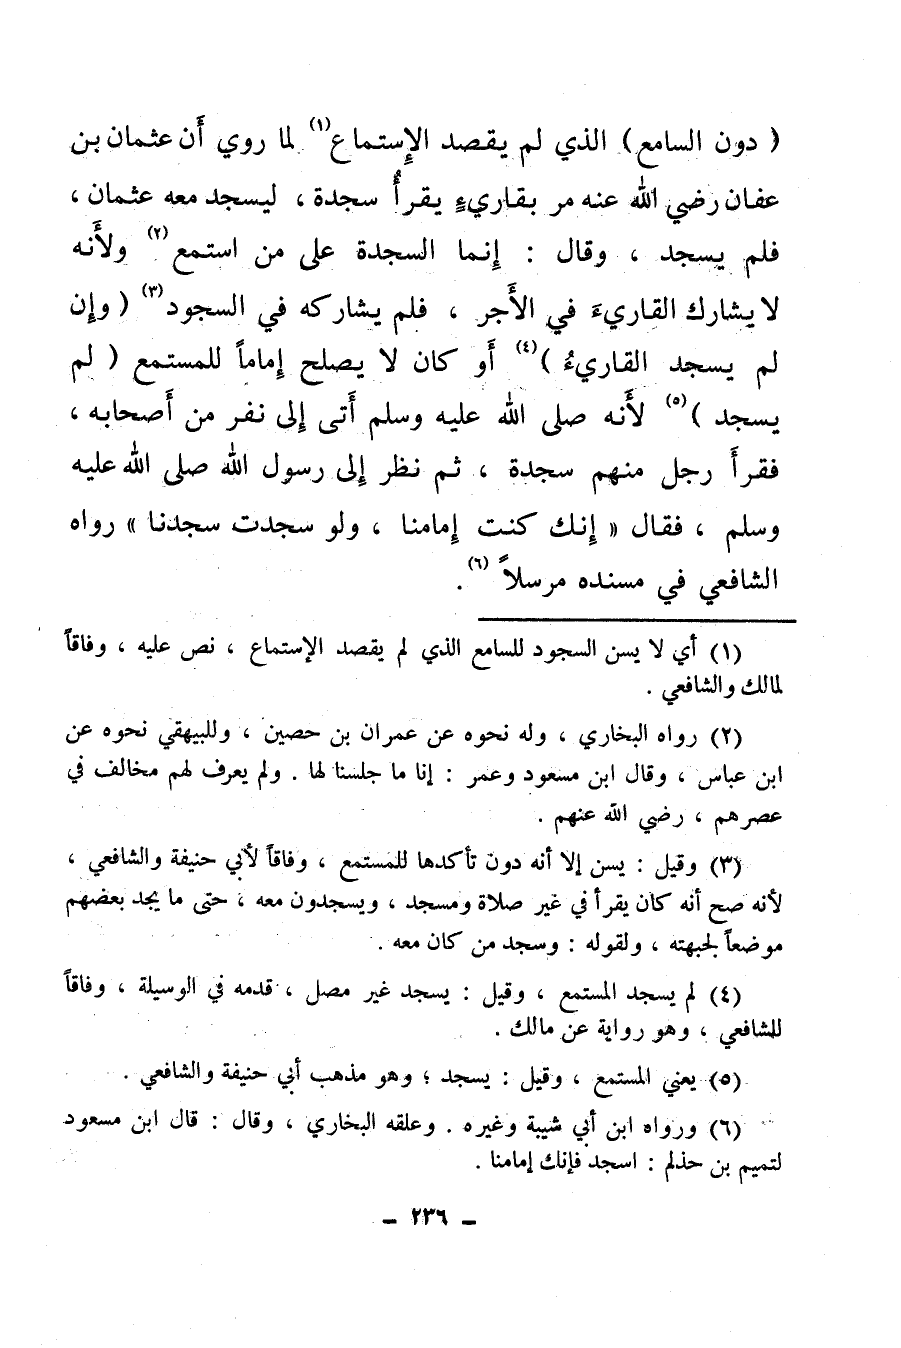 ( دون السامع ) الذي لم يقصد الإِستماع(١) لما روي أَن عثمان بن
عفان رضي الله عنه مر بقاريءٍ يقرأُ سجدة ، ليسجد معه عثمان ،
فلم يسجد ، وقال : إِنما السجدة على من استمع(٢) ولأَنه
لا يشارك القاريءَ في الأَجر ، فلم يشاركه في السجود(٣) ( وإِن
لم يسجد القاريءُ )(٤) أَو كان لا يصلح إِماماً للمستمع ( لم
يسجد )(٥) لأَنه صلى الله عليه وسلم أَتى إِلى نفر من أَصحابه ،
فقرأَ رجل منهم سجدة ، ثم نظر إِلى رسول الله صلى الله عليه
وسلم ، فقال « إِنك كنت إِمامنا ، ولو سجدت سجدنا » رواه
الشافعي في مسنده مرسلاً (٦) .
(١) أي لا يسن السجود للسامع الذي لم يقصد الإستماع ، نص عليه ، وفاقاً
لمالك والشافعي .
(٢) رواه البخاري ، وله نحوه عن عمران بن حصين ، وللبيهقي نحوه عن
ابن عباس ، وقال ابن مسعود وعمر : إنا ما جلسنا لها . ولم يعرف لهم مخالف في
عصرهم ، رضي الله عنهم .
(٣) وقيل : يسن إلا أنه دون تأكدها للمستمع ، وفاقاً لأبي حنيفة والشافعي ،
لأنه صح أنه كان يقرأ في غير صلاة ومسجد ، ويسجدون معه ، حتى ما يجد بعضهم
موضعاً لجبهته ، ولقوله : وسجد من كان معه .
(٤) لم يسجد المستمع ، وقيل : يسجد غير مصل ، قدمه في الوسيلة ، وفاقاً
للشافعي ، وهو رواية عن مالك .
(٥) يعني المستمع ، وقيل : يسجد ؛ وهو مذهب أبي حنيفة والشافعي .
(٦) ورواه ابن أبي شيبة وغيره . وعلقه البخاري ، وقال : قال ابن مسعود
لتميم بن حذلم : اسجد فإنك إمامنا .
ـ ٢٣٦ ـ